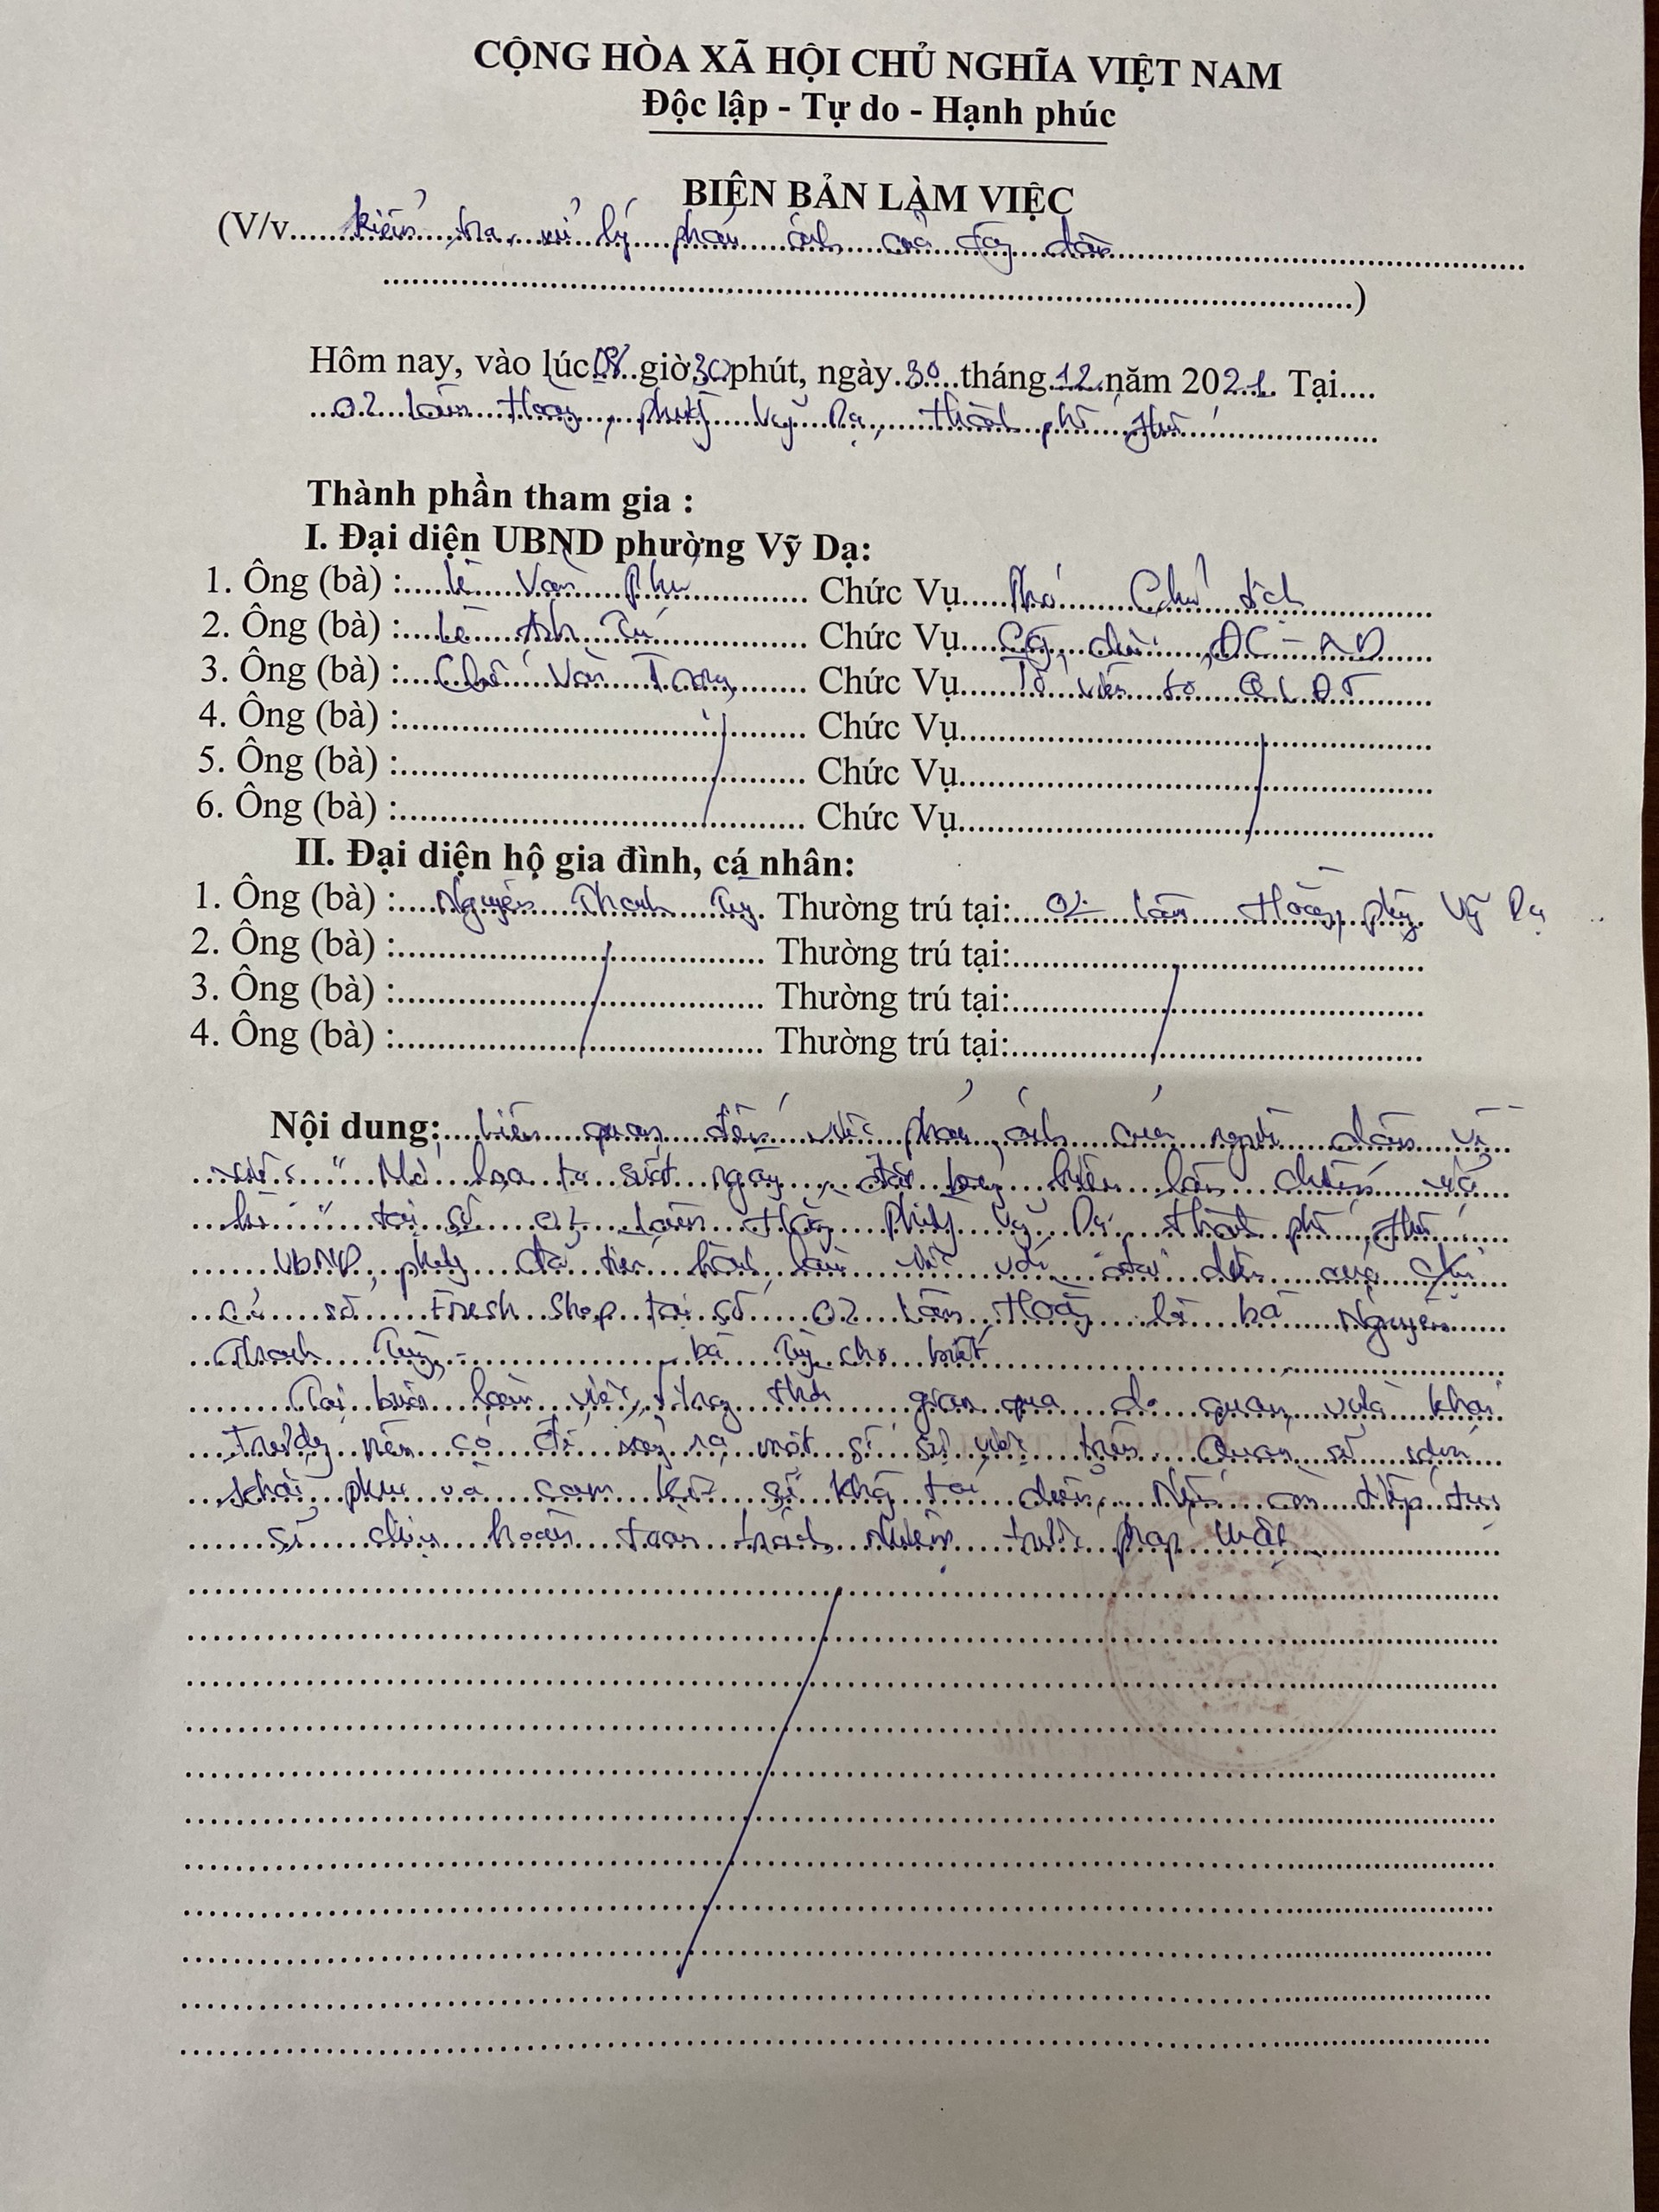 CỘNG HÒA XÃ HỘI CHỦ NGHĨA VIỆT NAM
Độc lập - Tự do - Hạnh phúc
BIÊN BẢN LÀM VIỆC
(V/v.....kiểm tra, xử lý phản ánh của công dân.....
.....)
Hôm nay, vào lúc 08 giờ 30 phút, ngày 30 tháng 12 năm 2021. Tại....
02 Lâm Hoằng, phường Vỹ Dạ, thành phố Huế
Thành phần tham gia :
I. Đại diện UBND phường Vỹ Dạ:
1. Ông (bà) : Lê Văn Phú Chức Vụ Phó Chủ tịch
2. Ông (bà) : Lê Anh Tú Chức Vụ ĐC - XD
3. Ông (bà) : Văn Chức Vụ Tổ viên tổ QLĐT
4. Ông (bà) :..... Chức Vụ.....
5. Ông (bà) :..... Chức Vụ.....
6. Ông (bà) :..... Chức Vụ.....
II. Đại diện hộ gia đình, cá nhân:
1. Ông (bà) : Nguyễn Thanh Thường trú tại: 02 Lâm Hoằng, phường Vỹ Dạ
2. Ông (bà) :..... Thường trú tại:.....
3. Ông (bà) :..... Thường trú tại:.....
4. Ông (bà) :..... Thường trú tại:.....
Nội dung: Liên quan đến việc phản ánh của người dân về
việc " Mở loa to suốt ngày, lấn chiếm vỉa
hè " tại số 02 Lâm Hoằng phường Vỹ Dạ, thành phố Huế
UBND phường đã tiến hành làm việc với đại diện của
cơ sở Fresh Shop tại số 02 Lâm Hoằng là bà Nguyễn
Thanh bà cho biết
Tại buổi làm việc, trong thời gian qua do quán vừa khai
trương nên có để xảy ra một số sự việc trên. Quán sẽ
khắc phục và cam kết sẽ không tái diễn. Nếu còn tiếp tục
sẽ chịu hoàn toàn trách nhiệm trước pháp luật